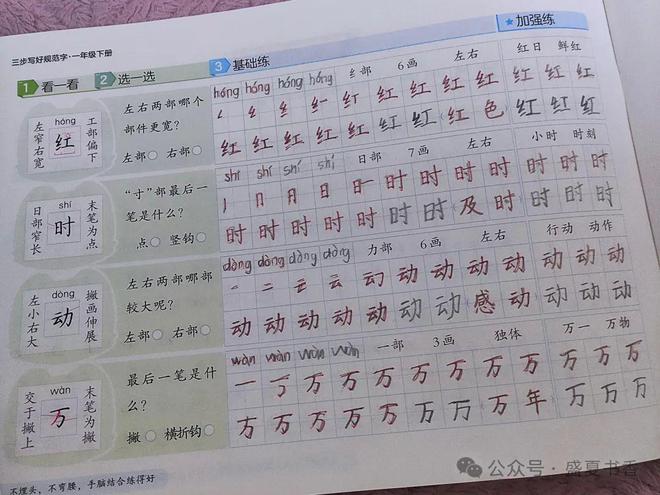 三步写好规范字·一年级下册
1 看一看 2 选一选 3 基础练 ★加强练
hóng
左窄右宽 红 工部偏下
左右两部哪个部件更宽?
左部○ 右部○
hóng hóng hóng hóng 纟部 6画 左右 红日 鲜红
红 红 红 红 红 红 红
红 红 红 红 红 红 红 (红色) 红 红 红
shí
日部窄长 时 末笔为点
“寸”部最后一笔是什么?
点○ 竖钩○
shí shí shí shí 日部 7画 左右 小时 时刻
丨 冂 月 日 时 时 时 时 时 时 时
时 时 时 时 时 时 (及时) 时 时 时
dòng
左小右大 动 撇画伸展
左右两部哪部较大呢?
左部○ 右部○
dòng dòng dòng dòng 力部 6画 左右 行动 动作
一 二 云 云 动 动 动 动 动 动 动
动 动 动 动 动 动 动 (感动) 动 动 动
wàn
交于撇上 万 末笔为撇
最后一笔是什么?
撇○ 横折钩○
wàn wàn wàn wàn 一部 3画 独体 万一 万物
一 万 万 万 万 万 万 万 万 万
万 万 万 万 万 万 万 (万年) 万 万 万
不埋头,不弯腰,手脑结合练得好
公众号·盛夏书香